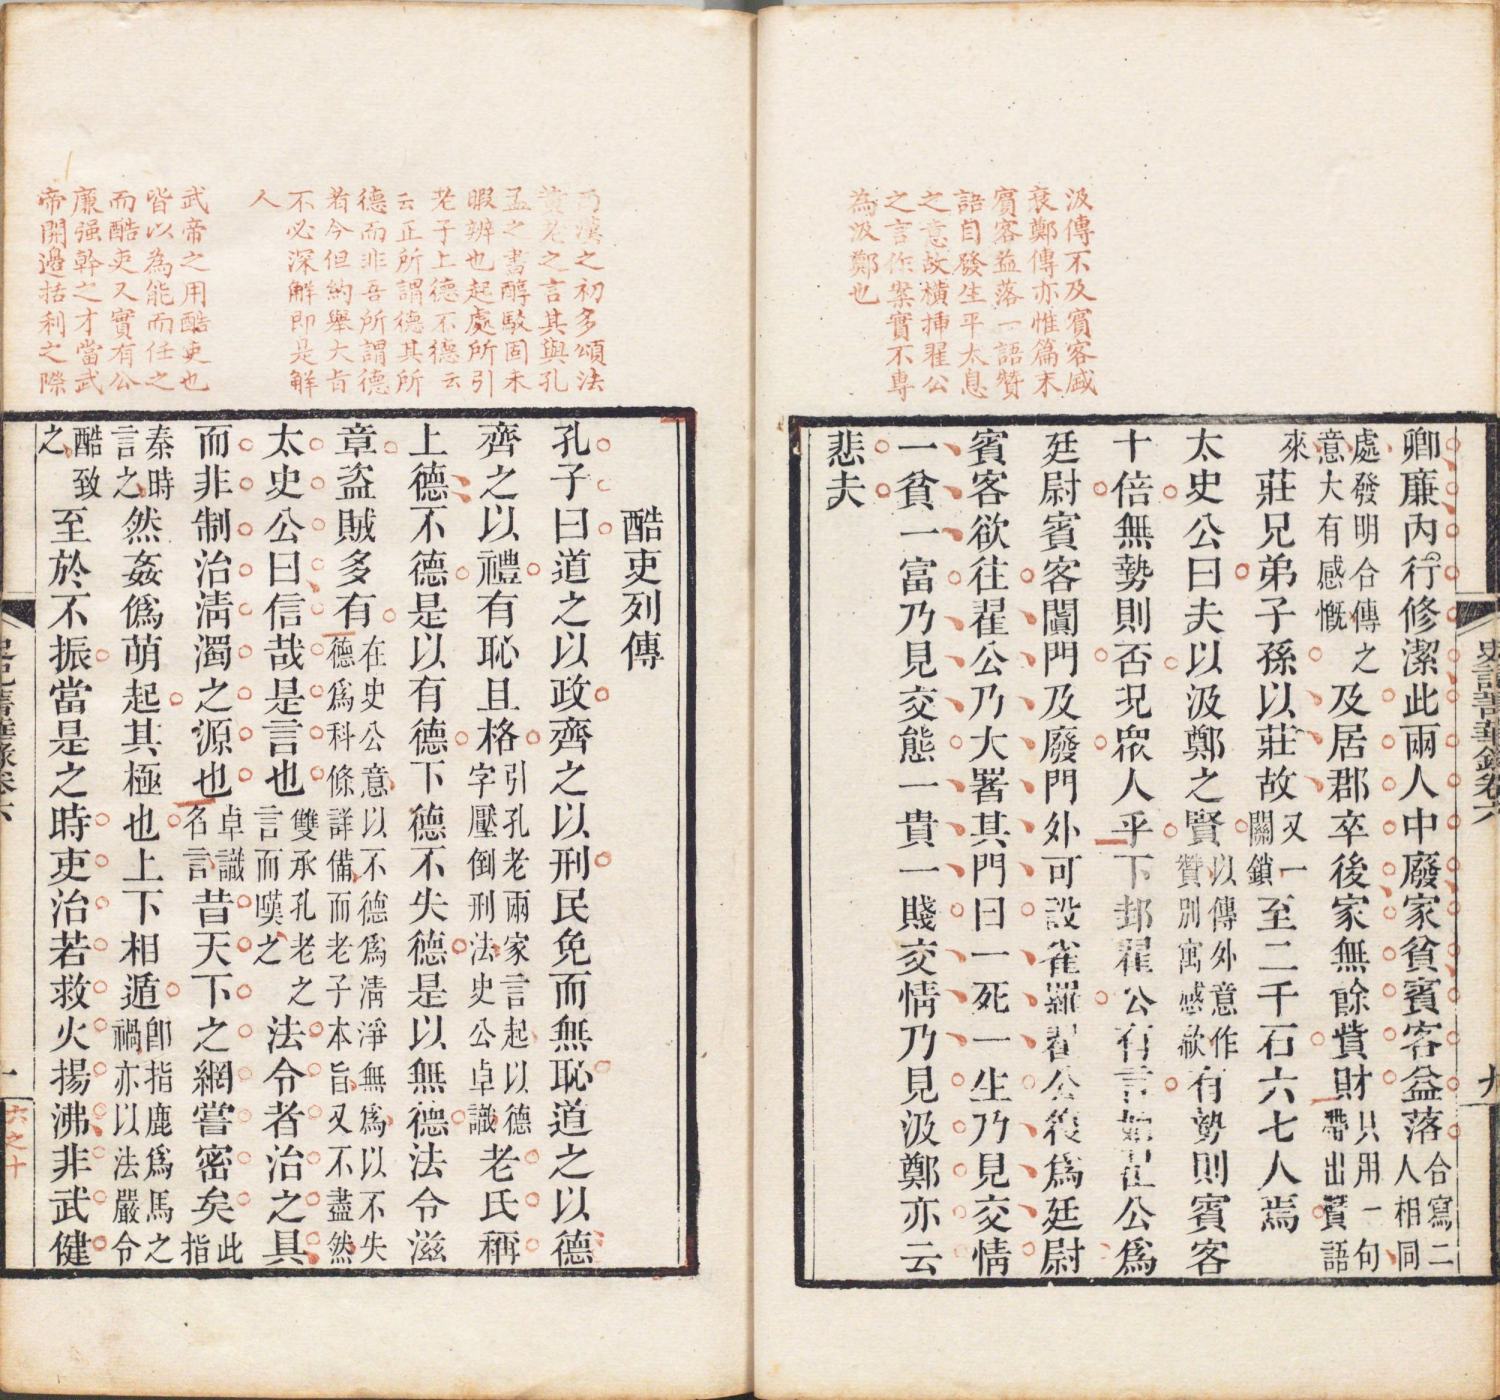 汲傳不及賓客盛
衰鄭傳亦惟篇末
賓客益落一語贊
語自發生平太息
之意故橫插翟公
之言作案實不專
為汲鄭也
卿廉內行修潔此兩人中廢家貧賓客益落合寫二人相同
處發明合傳之意大有感慨及居郡卒後家無餘貲財只用一句帶出賓語
來莊兄弟子孫以莊故又一關鎖至二千石六七人焉
太史公曰夫以汲鄭之賢以傳外意作贊別寓感歎有勢則賓客
十倍無勢則否況眾人乎下邽翟公有言始翟公爲
廷尉賓客闐門及廢門外可設雀羅翟公復爲廷尉
賓客欲往翟公乃大署其門曰一死一生乃見交情
一貧一富乃見交態一貴一賤交情乃見汲鄭亦云
悲夫
史記菁華錄卷六
九
乃漢之初多頌法
黃老之言其與孔
孟之書醇駁固未
暇辨也起處所引
老子上德不德云
云正所謂德其所
德而非吾所謂德
者今但約舉大旨
不必深解即是解
人
武帝之用酷吏也
皆以為能而任之
而酷吏又實有公
廉强幹之才當武
帝開邊括利之際
酷吏列傳
孔子曰道之以政齊之以刑民免而無恥道之以德
齊之以禮有恥且格引孔老兩家言起以德字壓倒刑法史公卓識老氏稱
上德不德是以有德下德不失德是以無德法令滋
章盜賊多有在史公意以不德爲清淨無爲以不失德爲科條詳備而老子本旨又不盡然
太史公曰信哉是言也雙承孔老之言而嘆之法令者治之具
而非制治清濁之源也卓識名言昔天下之網嘗密矣此指
秦時言之然姦僞萌起其極也上下相遁卽指鹿爲馬之禍亦以法嚴令
酷致之至於不振當是之時吏治若救火揚沸非武健
史記菁華錄卷六
一
六之十